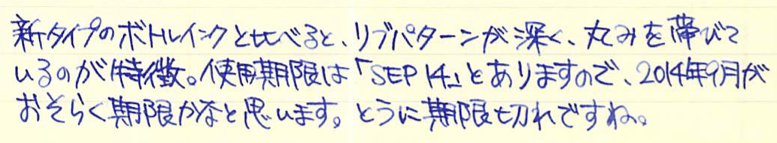 新タイプのボトルインクと比べると、リブパターンが深く、丸みを帯びて
いるのが特徴。使用期限は「SEP 14」とありますので、2014年9月が
おそらく期限かなと思います。とうに期限切れですね。